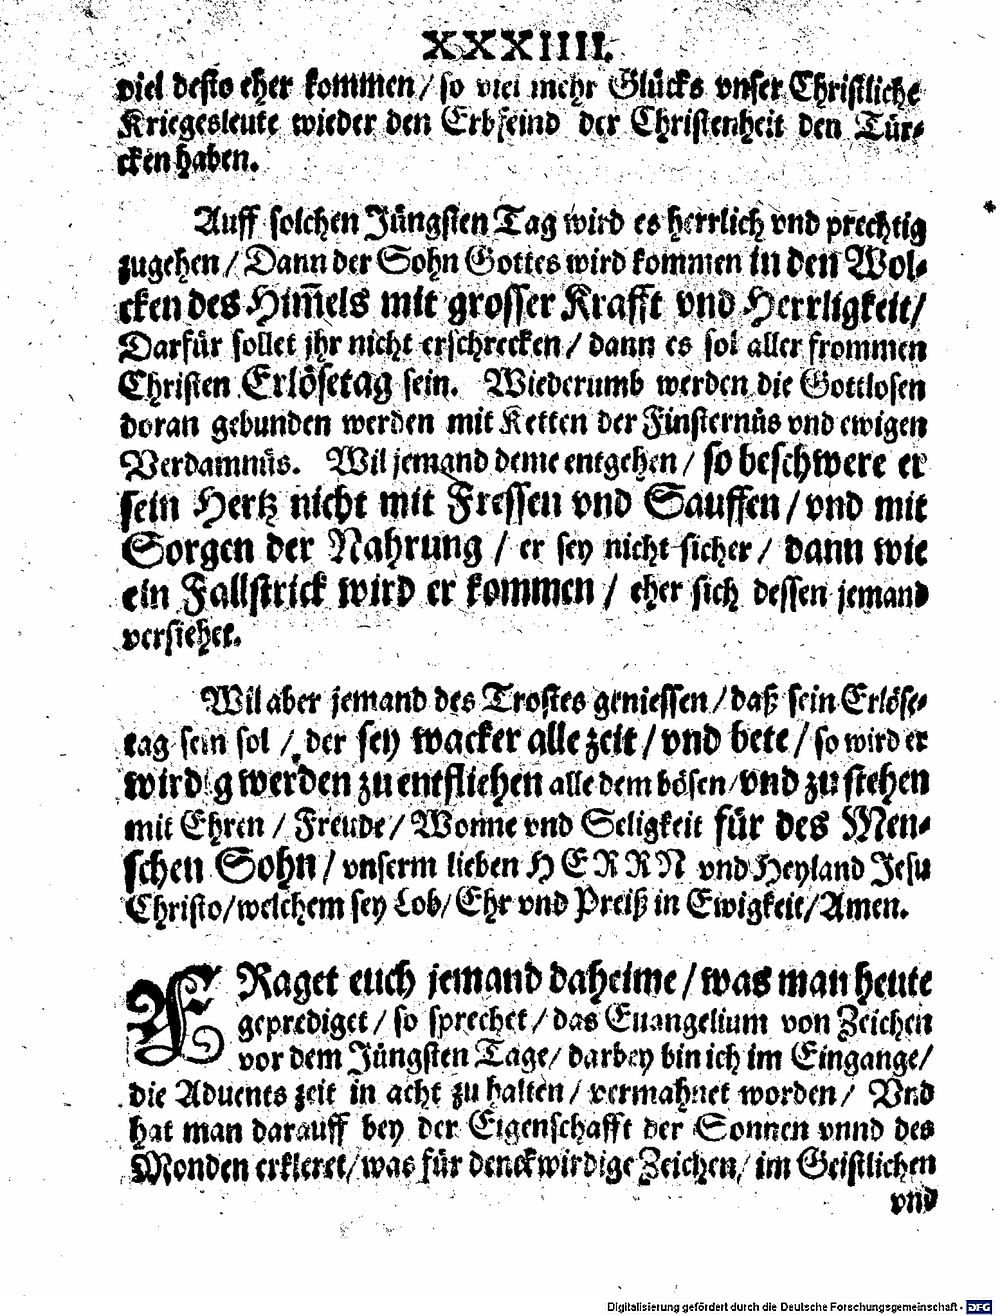 XXXIIII.
viel desto eher kommen / so viel mehr Glücks vnser Christliche
Kriegesleute wieder den Erbfeind der Christenheit den Tür-
cken haben.
Auff solchen Jüngsten Tag wird es herrlich vnd prechtig
zugehen / Dann der Sohn Gottes wird kommen in den Wol-
cken des Him̃els mit grosser Krafft vnd Herrligkeit /
Darfür sollet jhr nicht erschrecken / dann es sol aller frommen
Christen Erlösetag sein. Wiederumb werden die Gottlosen
doran gebunden werden mit Ketten der Finsternüs vnd ewigen
Verdamnüs. Wil jemand deme entgehen / so beschwere er
sein Hertz nicht mit Fressen vnd Sauffen / vnd mit
Sorgen der Nahrung / er sey nicht sicher / dann wie
ein Fallstrick wird er kommen / eher sich dessen jemand
versiehet.
Wil aber jemand des Trostes geniessen / daß sein Erlöse-
tag sein sol / der sey wacker alle zeit / vnd bete / so wird er
wirdig werden zu entfliehen alle dem bösen / vnd zu stehen
mit Ehren / Freude / Wonne vnd Seligkeit für des Men-
schen Sohn / vnserm lieben HERRN vnd Heyland Jesu
Christo / welchem sey Lob / Ehr vnd Preiß in Ewigkeit / Amen.
FRaget euch jemand daheime / was man heute
geprediget / so sprechet / das Euangelium von Zeichen
vor dem Jüngsten Tage / darbey bin ich im Eingange /
die Aduents zeit in acht zu halten / vermahnet worden / Vnd
hat man darauff bey der Eigenschafft der Sonnen vnnd des
Monden erkleret / was für denckwirdige Zeichen / im Geistlichen
vnd
Digitalisierung gefördert durch die Deutsche Forschungsgemeinschaft - DFG